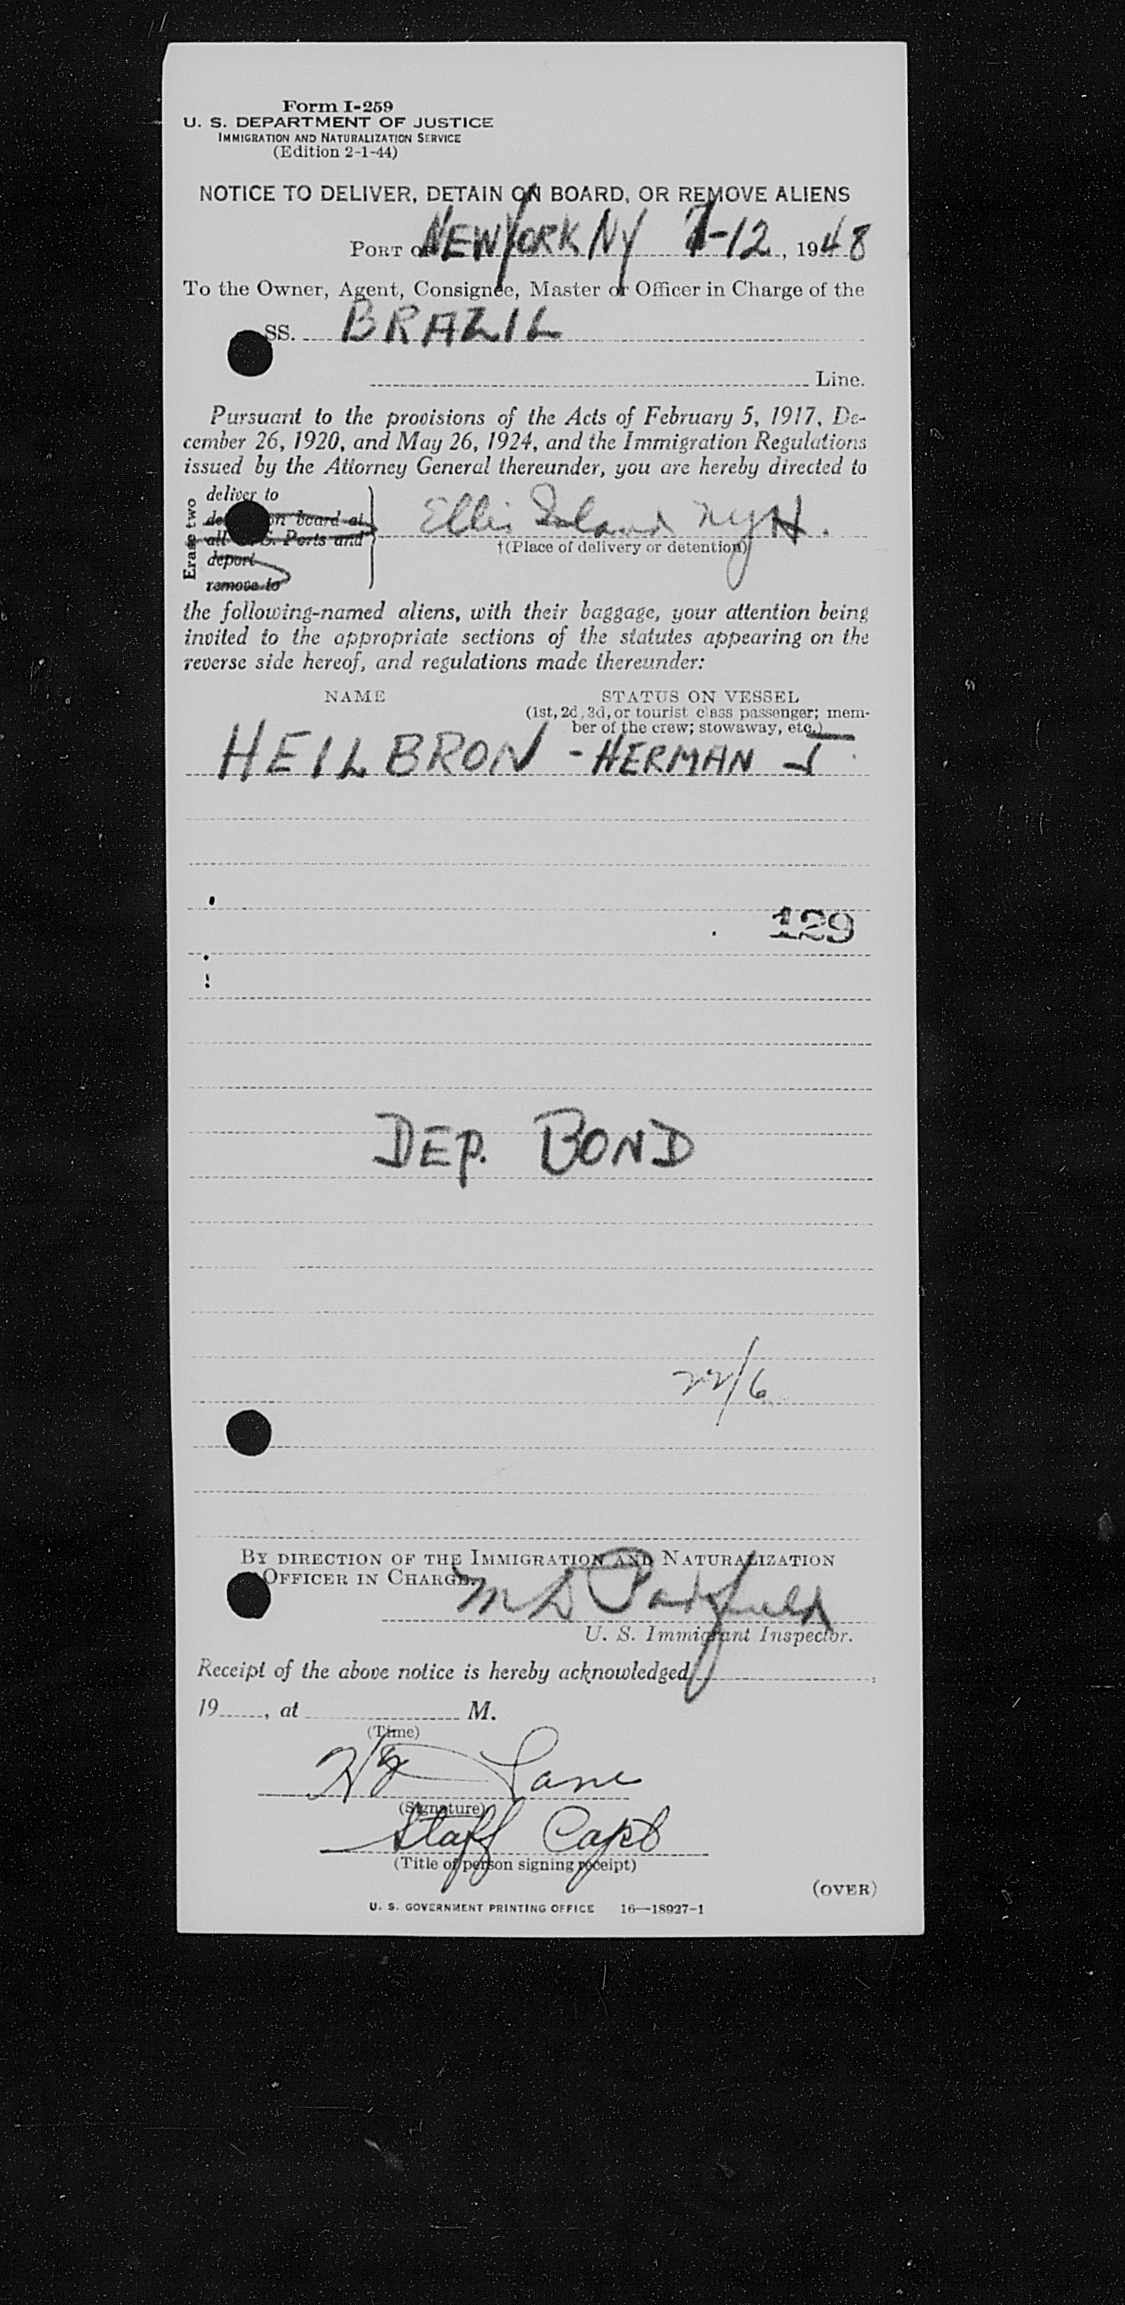 Form I-259
U. S. DEPARTMENT OF JUSTICE
IMMIGRATION AND NATURALIZATION SERVICE
(Edition 2-1-44)
NOTICE TO DELIVER, DETAIN ON BOARD, OR REMOVE ALIENS
PORT OF NEW YORK NY 7-12, 1948
To the Owner, Agent, Consignee, Master or Officer in Charge of the
SS. BRAZIL
Line.
Pursuant to the provisions of the Acts of February 5, 1917, De-
cember 26, 1920, and May 26, 1924, and the Immigration Regulations
issued by the Attorney General thereunder, you are hereby directed to
Erase two
deliver to
on board at
all Ports and
deport
remove to
Ellis Island NYH.
†(Place of delivery or detention)
the following-named aliens, with their baggage, your attention being
invited to the appropriate sections of the statutes appearing on the
reverse side hereof, and regulations made thereunder:
NAME STATUS ON VESSEL
(1st, 2d, 3d, or tourist class passenger; mem-
ber of the crew; stowaway, etc.)
HEILBRON - HERMAN J
129
DEP. BOND
22/6
BY DIRECTION OF THE IMMIGRATION AND NATURALIZATION
OFFICER IN CHARGE.
M D
U. S. Immigrant Inspector.
Receipt of the above notice is hereby acknowledged
19 , at M.
(Time)
Lane
(Signature)
Staff Capt
(Title of person signing receipt)
(OVER)
U. S. GOVERNMENT PRINTING OFFICE 16—18927-1